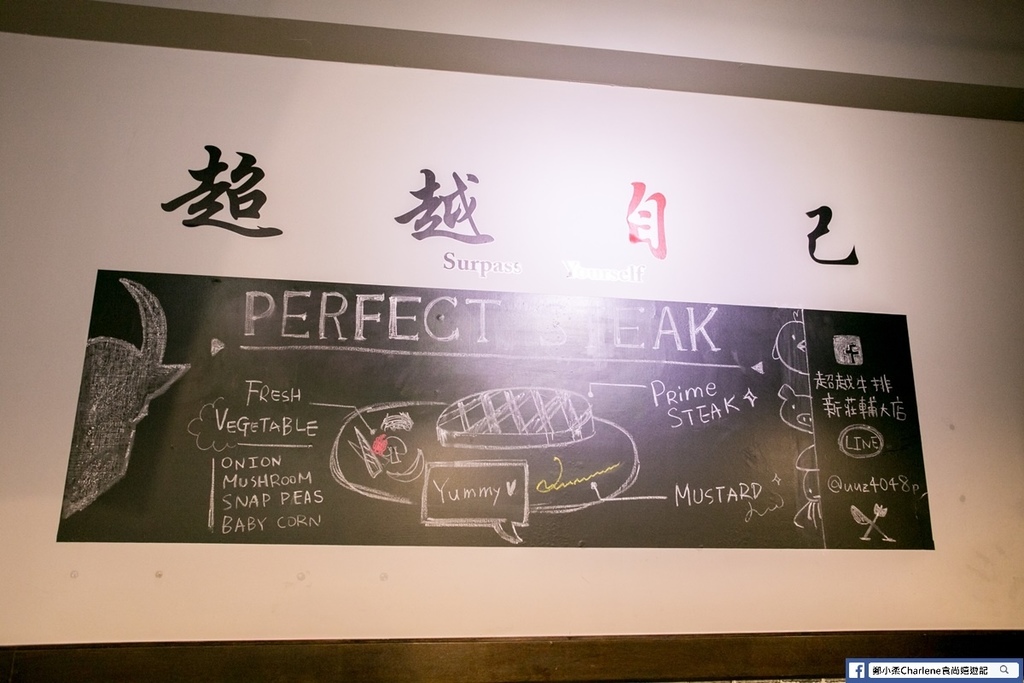 超越自己
Surpass Yourself
PERFECT STEAK
FRESH
VEGETABLE
ONION
MUSHROOM
SNAP PEAS
BABY CORN
Yummy
Prime
STEAK
MUSTARD
超越牛排
新莊輔大店
LINE
@uuz4048p
鄭小柔Charlene食尚嬉遊記